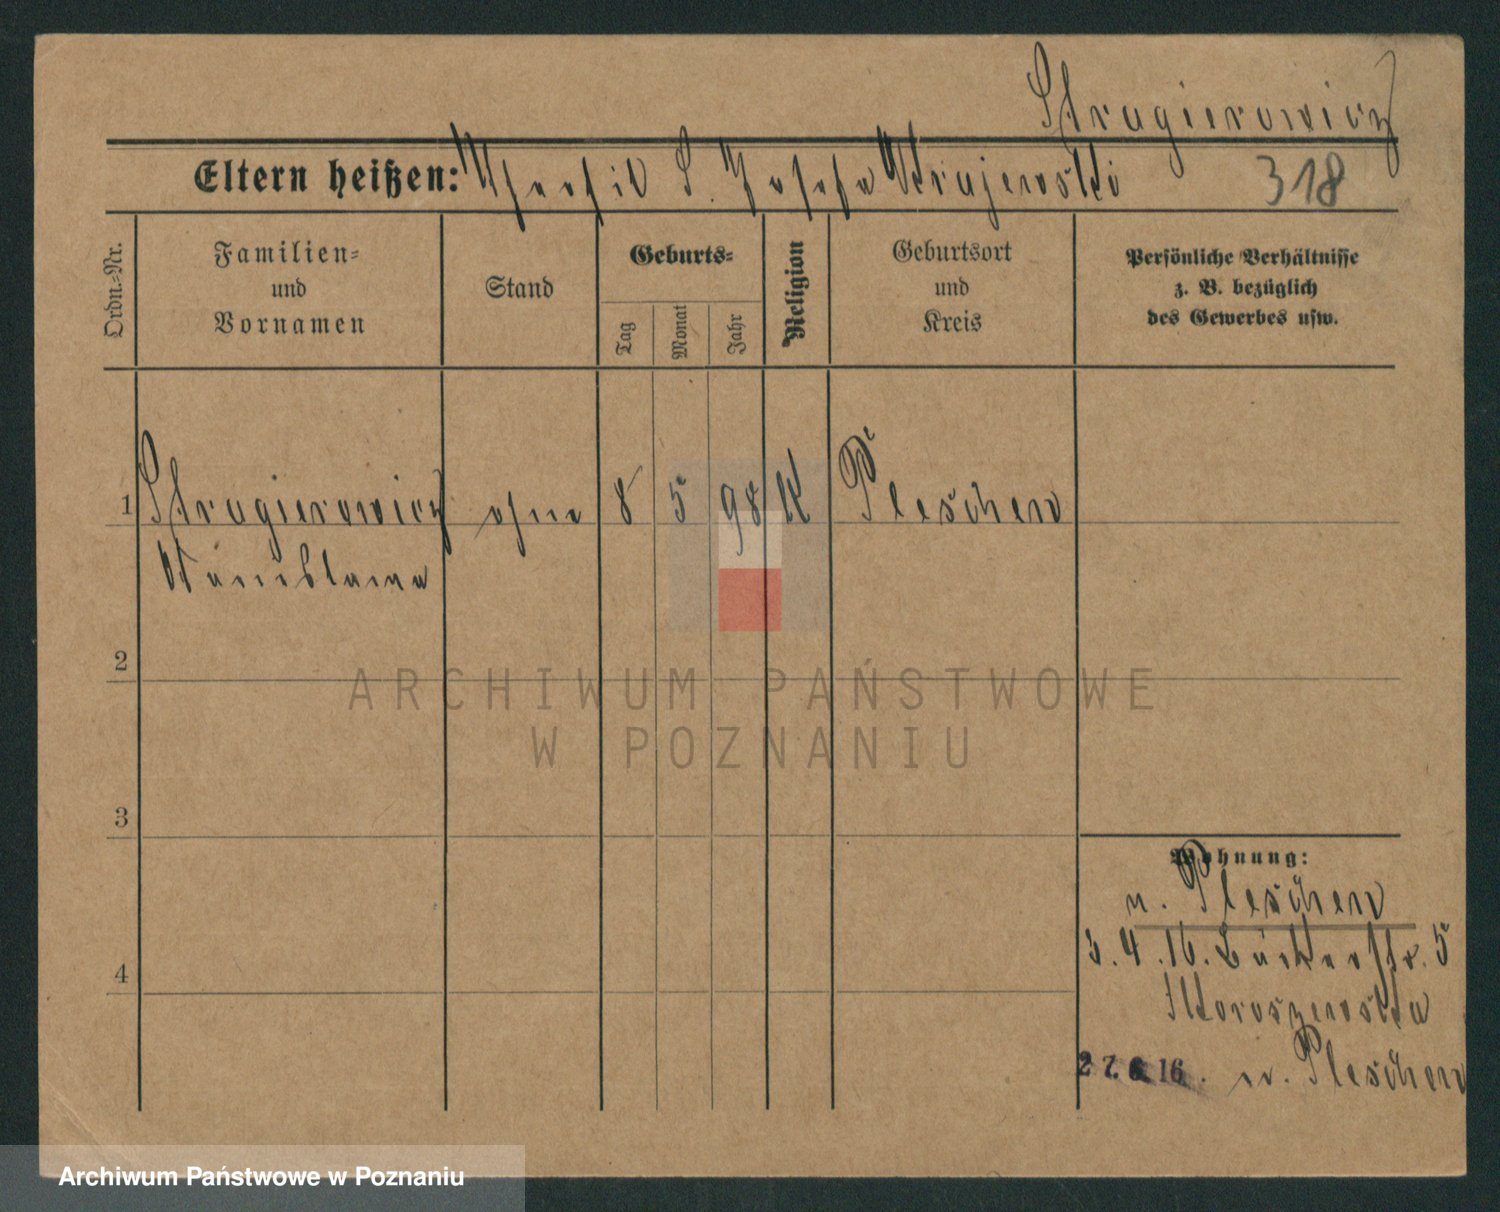 Strugierowicz
Eltern heißen: S. Josefa Krajewski 318
Ordn.-Nr.
Familien-
und
Vornamen
Stand
Geburts-
Tag
Monat
Jahr
Religion
Geburtsort
und
Kreis
Persönliche Verhältnisse
z. B. bezüglich
des Gewerbes usw.
1 Strugierowicz ohne 8 5 98 K Pleschen
2
3
4
Wohnung:
n. Pleschen
3.4.16. Bäckerstr. 5
27. 6. 16. n. Pleschen
ARCHIWUM PAŃSTWOWE
W POZNANIU
Archiwum Państwowe w Poznaniu